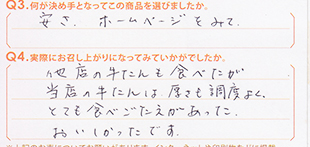 Q3.何が決め手となってこの商品を選びましたか。
安さ、ホームページをみて、
Q4.実際にお召し上がりになってみていかがでしたか。
他店の牛たんも食べたが
当店の牛たんは、厚さも調度よく、
とても食べごたえがあった。
おいしかったです。